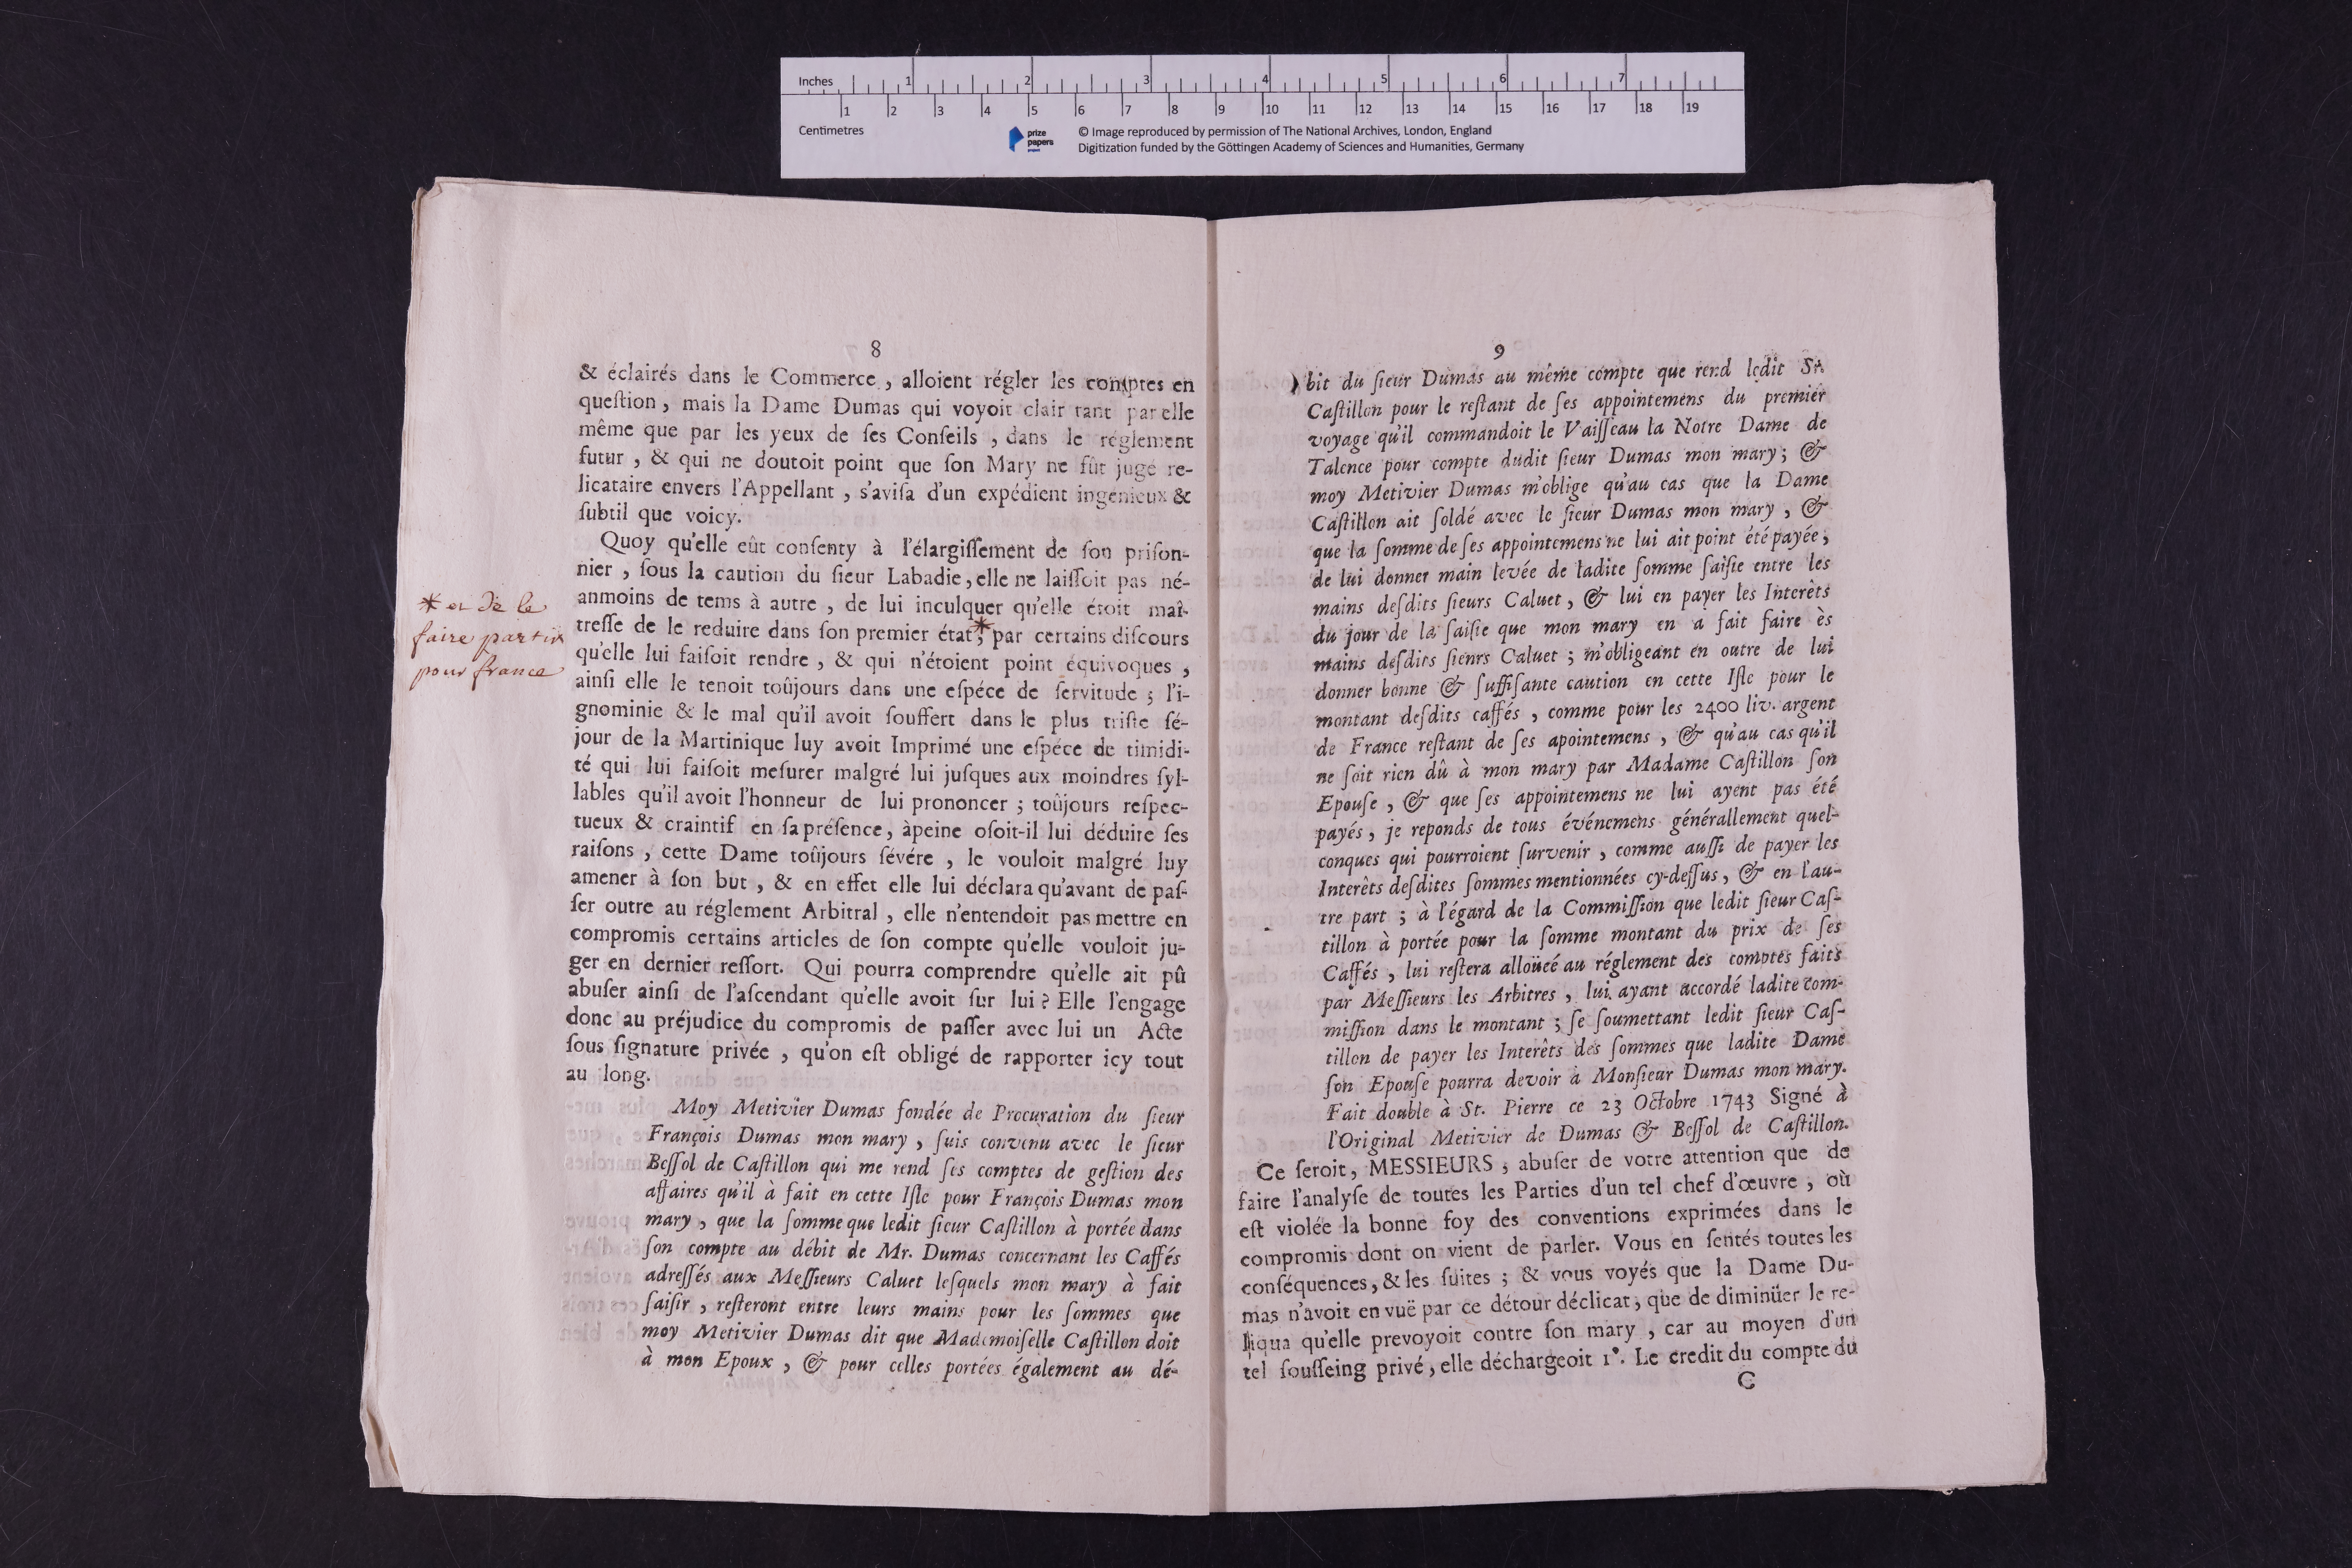 Inches 1 2 3 4 5 6 7
1 2 3 4 5 6 7 8 9 10 11 12 13 14 15 16 17 18 19
Centimetres
prize
papers
project
© Image reproduced by permission of The National Archives, London, England
Digitization funded by the Göttingen Academy of Sciences and Humanities, Germany
8
& éclairés dans le Commerce, alloient régler les comptes en
queſtion, mais la Dame Dumas qui voyoit clair tant par elle
même que par les yeux de ſes Conſeils, dans le réglement
futur, & qui ne doutoit point que ſon Mary ne fût jugé re-
licataire envers l'Appellant, s'aviſa d'un expédient ingénieux &
ſubtil que voicy.
Quoy qu'elle eût conſenty à l'élargiſſement de ſon priſon-
nier, ſous la caution du ſieur Labadie, elle ne laiſſoit pas né-
anmoins de tems à autre, de lui inculquer qu'elle étoit maî-
treſſe de le reduire dans ſon premier état*, par certains diſcours
qu'elle lui faiſoit rendre, & qui n'étoient point équivoques,
ainſi elle le tenoit toûjours dans une eſpéce de ſervitude; l'i-
gnominie & le mal qu'il avoit ſouffert dans le plus triſte ſé-
jour de la Martinique luy avoit Imprimé une eſpéce de timidi-
té qui lui faiſoit meſurer malgré lui juſques aux moindres ſyl-
lables qu'il avoit l'honneur de lui prononcer; toûjours reſpec-
tueux & craintif en ſa préſence, àpeine oſoit-il lui déduire ſes
raiſons, cette Dame toûjours ſévére, le vouloit malgré luy
amener à ſon but, & en effet elle lui déclara qu'avant de paſ-
ſer outre au réglement Arbitral, elle n'entendoit pas mettre en
compromis certains articles de ſon compte qu'elle vouloit ju-
ger en dernier reſſort. Qui pourra comprendre qu'elle ait pû
abuſer ainſi de l'aſcendant qu'elle avoit ſur lui? Elle l'engage
donc au préjudice du compromis de paſſer avec lui un Acte
ſous ſignature privée, qu'on eſt obligé de rapporter icy tout
au long.
Moy Metivier Dumas fondée de Procuration du ſieur
François Dumas mon mary, ſuis convenu avec le ſieur
Beſſol de Caſtillon qui me rend ſes comptes de geſtion des
affaires qu'il à fait en cette Iſle pour François Dumas mon
mary, que la ſomme que ledit ſieur Caſtillon à portée dans
ſon compte au débit de Mr. Dumas concernant les Caffés
adreſſés aux Meſſieurs Caluet leſquels mon mary à fait
ſaiſir, reſteront entre leurs mains pour les ſommes que
moy Metivier Dumas dit que Mademoiſelle Caſtillon doit
à mon Epoux, & pour celles portées également au dé-
* et de le
faire partir
pour france
9
bit du ſieur Dumas au même compte que rend ledit Sr.
Caſtillon pour le reſtant de ſes appointemens du premier
voyage qu'il commandoit le Vaiſſeau la Notre Dame de
Talence pour compte dudit ſieur Dumas mon mary; &
moy Metivier Dumas m'oblige qu'au cas que la Dame
Caſtillon ait ſoldé avec le ſieur Dumas mon mary, &
que la ſomme de ſes appointemens ne lui ait point été payée,
de lui donner main levée de ladite ſomme ſaiſie entre les
mains deſdits ſieurs Caluet, & lui en payer les Interêts
du jour de la ſaiſie que mon mary en a fait faire ès
mains deſdits ſienrs Caluet; m'obligeant en outre de lui
donner bonne & ſuffiſante caution en cette Iſle pour le
montant deſdits caffés, comme pour les 2400 liv. argent
de France reſtant de ſes apointemens, & qu'au cas qu'il
ne ſoit rien dû à mon mary par Madame Caſtillon ſon
Epouſe, & que ſes appointemens ne lui ayent pas été
payés, je reponds de tous événemens générallement quel-
conques qui pourroient ſurvenir, comme auſſi de payer les
Interêts deſdites ſommes mentionnées cy-deſſus, & en l'au-
tre part; à l'égard de la Commiſſion que ledit ſieur Caſ-
tillon à portée pour la ſomme montant du prix de ſes
Caffés, lui reſtera alloüeé au réglement des comptes faits
par Meſſieurs les Arbitres, lui ayant accordé ladite com-
miſſion dans le montant; ſe ſoumettant ledit ſieur Caſ-
tillon de payer les Interêts des ſommes que ladite Dame
ſon Epouſe pourra devoir à Monſieur Dumas mon mary.
Fait double à St. Pierre ce 23 Octobre 1743 Signé à
l'Original Metivier de Dumas & Beſſol de Caſtillon.
Ce ſeroit, MESSIEURS, abuſer de votre attention que de
faire l'analyſe de toutes les Parties d'un tel chef d'œuvre, où
eſt violée la bonne foy des conventions exprimées dans le
compromis dont on vient de parler. Vous en ſentés toutes les
conſéquences, & les ſuites; & vous voyés que la Dame Du-
mas n'avoit en vuë par ce détour déclicat, que de diminüer le re-
liqua qu'elle prevoyoit contre ſon mary, car au moyen d'un
tel ſouſſeing privé, elle déchargeoit 1°. Le credit du compte du
C